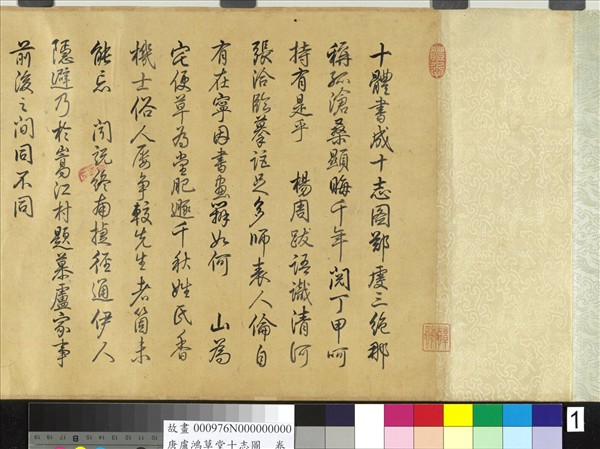 十體書成十志圖鄭虔三絕那
稱孤滄桑顯晦千年閱丁甲呵
持有是乎 楊周跋語識清河
張洽臨摹詎足多師表人倫自
有在寧因書畫辨如何 山為
宅便草為堂肥遯千秋姓氏香
機士俗人屢爭較先生者箇未
能忘 聞說終南捷徑通伊人
隱避乃於嵩江村題慕盧家事
前後之間同不同
故畫 000976N000000000
唐盧鴻草堂十志圖 卷
1